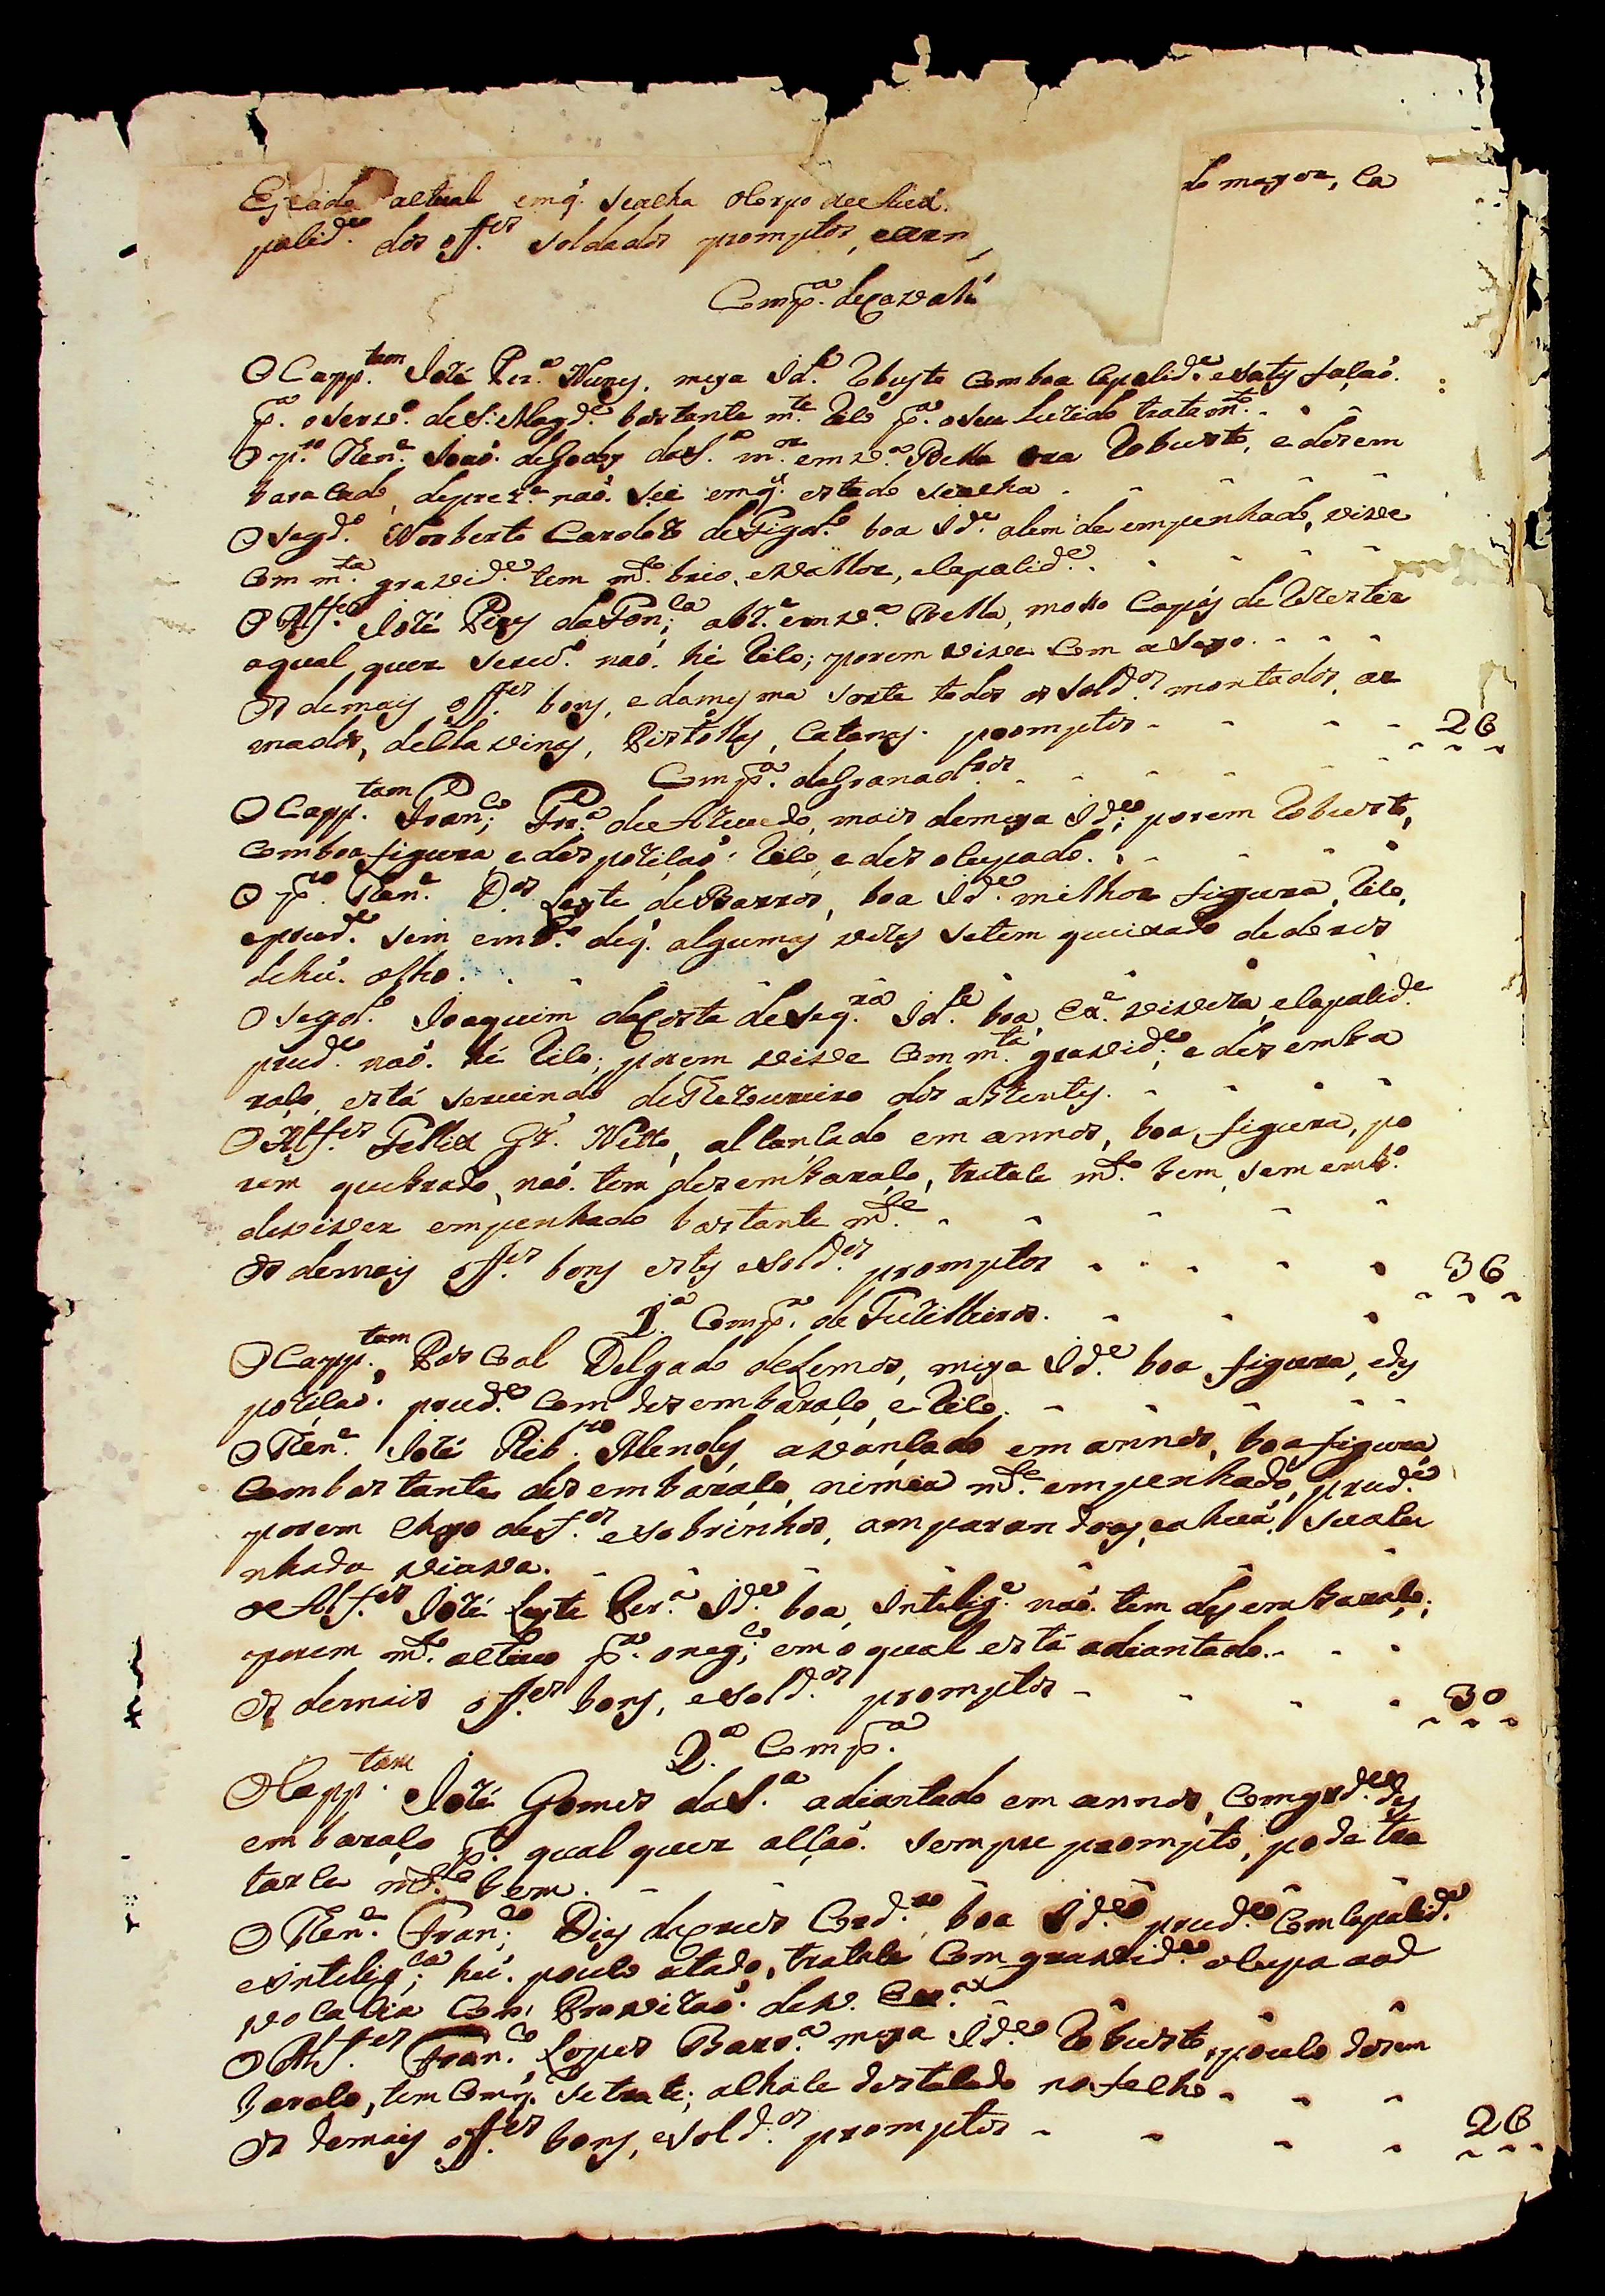 Estado actual emq̃. seacha oCorpo deAuxi. do mayor, Ca
palid.e dos off.es soldados promptos, earm
Comp.a deCavala
OCapp.tam José Per.a Nunes, meya Id.e Robusto comboa Capalid.e esatysfaçaõ.
p.a oserv.o deS. Magd.e bastante m.te Rico p.a oseu luzido tratam.to
O p.ro Ten.e Joaõ. deGodoy daS.a m.or em V.a Bella era Robusto, e dezem
baraçado, deprez.e naõ. sei emq̃. estado seacha
Osegd.o Norberto Cardozo deFigd.o boa Id.e alem de empenhado, vive
com m.ta gravid.e tem m.to brio, evallor, ecapalid.e
OAlf.es José Pires daFon.ca abz.e em V.a Bella, moso Capás de Exerter
aqual quer sered.o naõ. hé Rico; porem vive com aseyo
Os demays off.es bons, e damesma sorte todos os sold.os montados, ar
mados, deClavinas, Pistollas, Catanas. promptos 26
Comp.a deGranad.ros
OCapp.tam Fran.co Fr.a deAzevedo, mais demeya Id.e; porem Robusto,
Comboa figura e despoziçaõ: Rico, e dez ocupado.
O p.ro Ten.e D.os Leyte deBarros, boa Id.e milhor figura, Rico,
eprud.e sem emb.o deq̃. algumas vezes setem queixado dedores
dehũ. olho.
Osegd.o Joaquim daCosta deSeq.ra Id.e boa, Ex.e viveza, ecapalid.e
prud.e naõ. hé Rico; porem vive com m.ta gravid.e; e dez emba
raço, está servindo deTezoureiro dos abzentes.
OAlf.es Fellix Gz̃. Netto, alcançado em annos, boa figura, po
rem quebrado, naõ. tem dezembaraço, tratace m.to bem, sem emb.o
deviver empenhado bastante m.te
Os demays off.es bons estes esold.os promptos 36
1.a Comp.a de Fuzilleiros.
OCapp.tam Pascoal Delgado deLemos, meya Id.e boa figura, edis
poziçaõ. prud.e com dezembaraço, e Rico.
OTen.e José Rib.ro Mendes, avançado em annos, boa figura
Combastante dezembaraço, nimia m.te empenhado, prud.e
porem cheyo def.os esobrinhos, amparandoos, eahũa. suacu
nhada viuva.
oAlf.es José Leyte Per.a Id.e boa, Intelig.e naõ. tem desembaraço;
porem m.to activo p.a oneg.co; em o qual está adiantado.
Os demais off.es bons, esold.os promptos 30
2.a Comp.a
OCapp.tam José Gomes daS.a adiantado em annos, comgrd.e des
embaraço p.a qual quer acçaõ. sempre prompto; pode tra
tarce m.to bem.
OTen.e Fran.co Dias daCruz Cord.ro, boa Id.e prud.e comCapalid.e
eintelig.ca; hũ. pouco atado, tratace com gravid.e ocupa aad
vocacia com Provizaõ. deV. Ex.a
OAlf.es Fran.co Lopes Barr.a meya Id.e Robusto, pouco dezem
baraço, tem Comq̃. setrate; alhace destacado nafecho
Os demays off.es bons, esold.os promptos 26